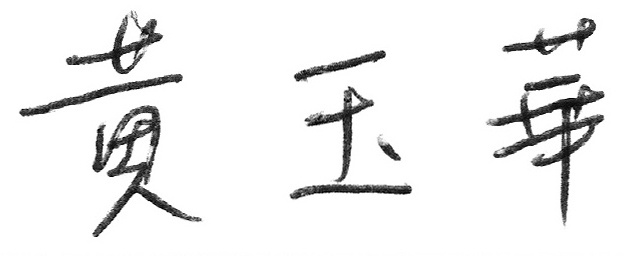 黄玉華